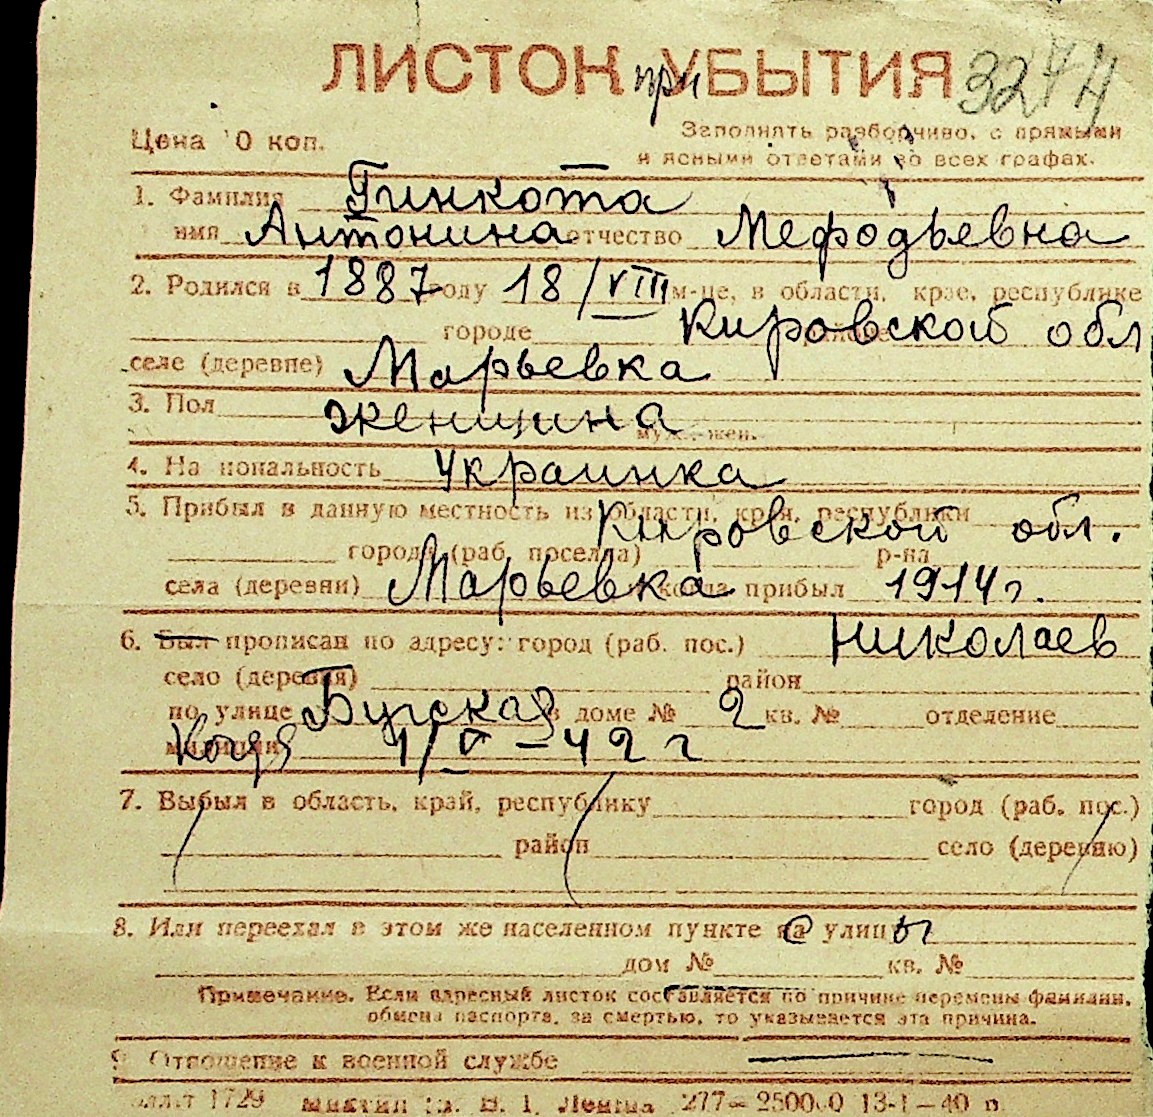 ЛИСТОК при УБЫТИЯ 3274
Цена 10 коп.
Заполнять разборчиво, с прямыми
и ясными ответами во всех графах.
1. Фамилия Гинкота
имя Антонина отчество Мефодьевна
2. Родился в 1887 году 18/VIII м-це, в области, крае, республике
городе Кировской обл
селе (деревне) Марьевка
3. Пол женщина
муж., жен.
4. Национальность украинка
5. Прибыл в данную местность из области, края, республики
Кировской обл.
города (раб. поселка) р-на
села (деревни) Марьевка когда прибыл 1914 г.
6. Был прописан по адресу: город (раб. пос.) Николаев
село (деревня) район
по улице Бугская в доме № 2 кв. № отделение
милиции Когда 1/V – 42 г
7. Выбыл в область, край, республику город (раб. пос.)
район село (деревню)
8. Или переехал в этом же населенном пункте с улицы
дом № кв. №
Примечание. Если адресный листок составляется по причине перемены фамилии,
обмена паспорта, за смертью, то указывается эта причина.
9. Отношение к военной службе —
1729 им. В. И. Ленина 277–250000 13-I–40 г.